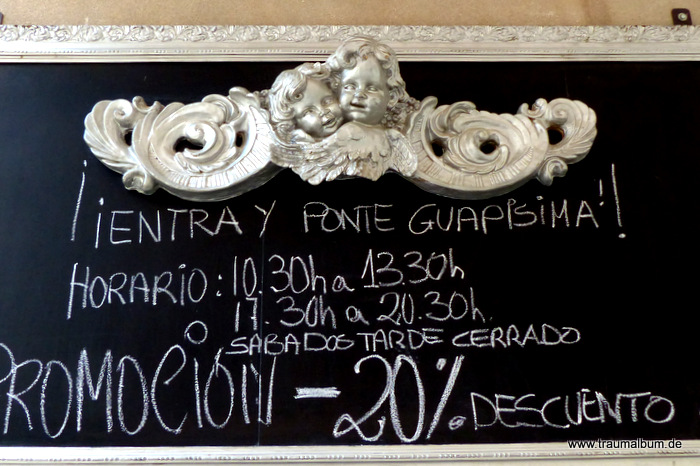 ¡¡ENTRA Y PONTE GUAPÍSIMA!!
HORARIO: 10.30h a 13.30h
17.30h a 20.30h.
SÁBADOS TARDE CERRADO
PROMOCIÓN - 20%. DESCUENTO
www.traumalbum.de